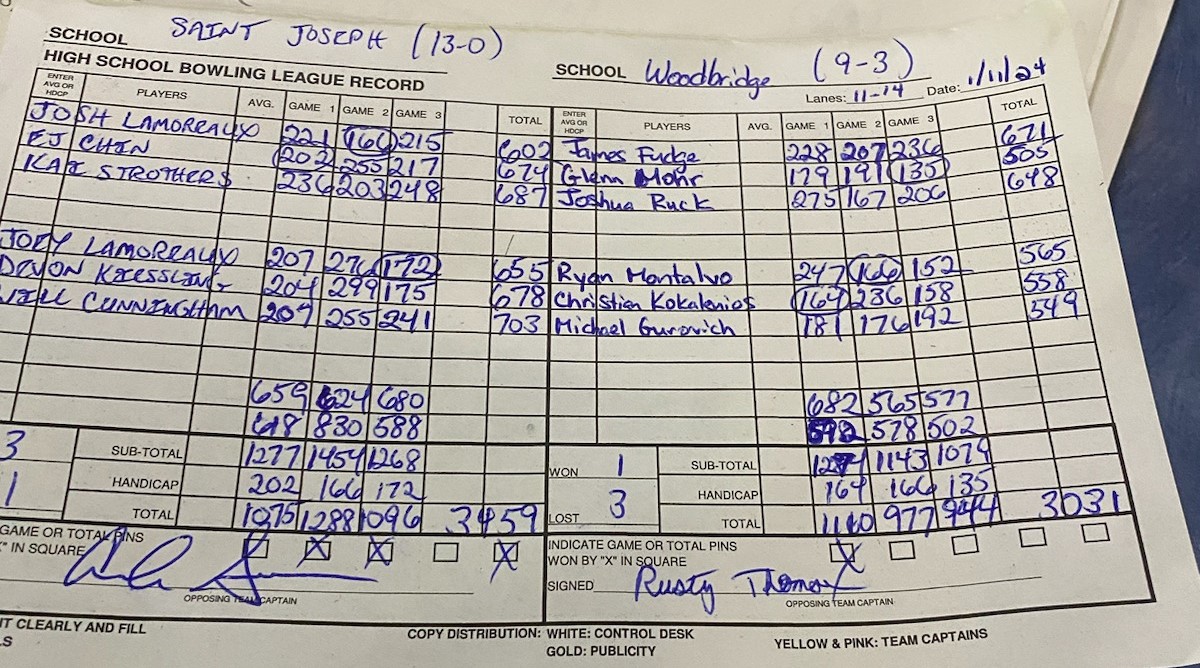 SCHOOL SAINT JOSEPH (13-0)
HIGH SCHOOL BOWLING LEAGUE RECORD
ENTER AVG OR HDCP PLAYERS AVG. GAME 1 GAME 2 GAME 3 TOTAL
JOSH LAMOREAUX 221 166 215 602
EJ CHIN 202 255 217 674
KAI STROTHERS 236 203 248 687
JOEY LAMOREAUX 207 276 172 655
DEVON KIESSLING 204 299 175 678
CUNNINGHAM 207 255 241 703
659 624 680
618 830 588
3 SUB-TOTAL 1277 1454 1268
1 HANDICAP 202 166 172
TOTAL 1075 1288 1096 3459
GAME OR TOTAL PINS
" IN SQUARE X X X
OPPOSING TEAM CAPTAIN
SCHOOL Woodbridge (9-3)
Lanes: 11-14 Date: 1/11/24
ENTER AVG OR HDCP PLAYERS AVG. GAME 1 GAME 2 GAME 3 TOTAL
James Fudge 228 207 236 671
Glenn Mohr 179 191 135 505
Joshua Ruck 275 167 206 648
Ryan Montalvo 247 166 152 565
Christian Kokalenios 164 236 158 558
Michael Gurovich 181 176 192 549
682 565 577
592 578 502
WON 1 SUB-TOTAL 1274 1143 1079
LOST 3 HANDICAP 164 166 135
TOTAL 1110 977 944 3031
INDICATE GAME OR TOTAL PINS
WON BY "X" IN SQUARE X
SIGNED Rusty Thomsen
OPPOSING TEAM CAPTAIN
T CLEARLY AND FILL
LS
COPY DISTRIBUTION: WHITE: CONTROL DESK
GOLD: PUBLICITY
YELLOW & PINK: TEAM CAPTAINS